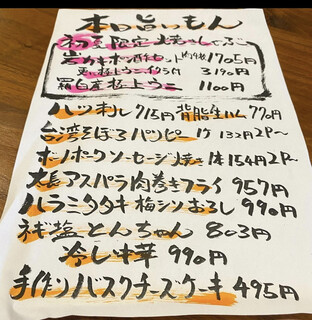 本日旨いもん
初夏限定 焼きしゃぶ
岩カキポン酢セット 1705円
更に極上ウニイクラ付 3190円
羅臼産極上ウニ 1100円
ハツ刺し 715円 背脂生ハム 770円
台湾そぼろパッピー 1ケ 132円 2P〜
ポークソーセージ焼き 1本 154円 2P〜
太長アスパラ肉巻きフライ 957円
ハラミタタキ梅シソおろし 990円
ネギ塩とんちゃん 803円
冷し中華 990円
手作りバスクチーズケーキ 495円